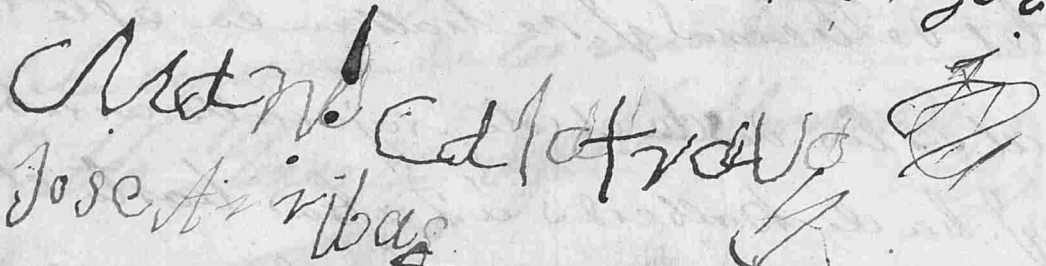 Man.l Calatrava
Jose Arribas